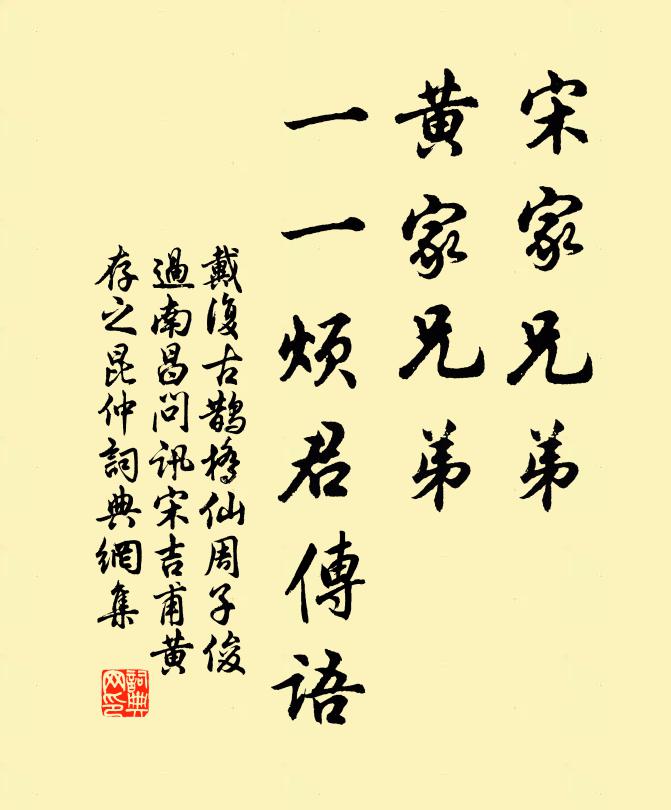 宋家兄弟
黄家兄弟
一一煩君傳語
戴復古鵲橋仙周子俊
過南昌問訊宋吉甫黄
存之昆仲詞典網集
詞典
网印